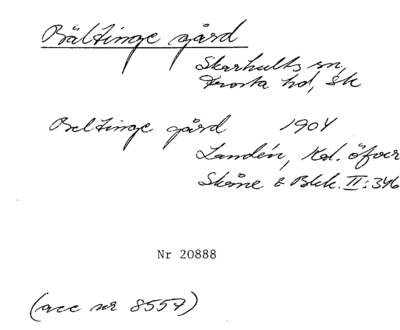 Bältinge gård
Skarhults sn,
Frosta hd, Sk
Beltinge gård 1904
Landén, Kal. öfver
Skåne & Blek. II: 346
Nr 20888
(acc nr 8557)